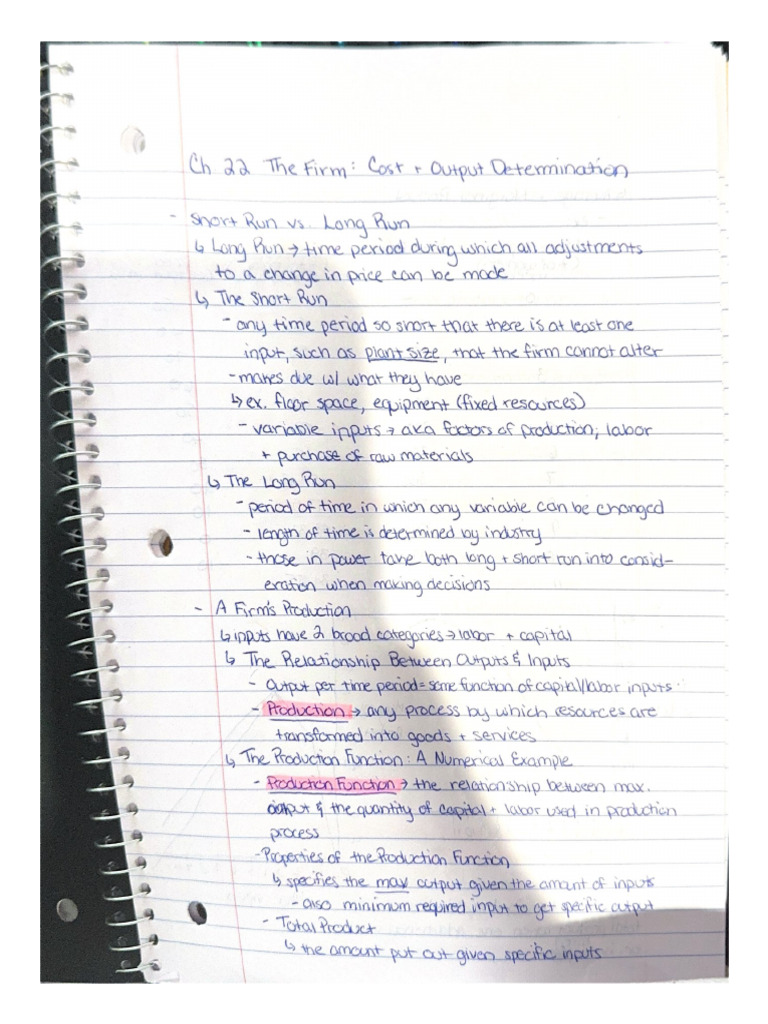 Ch 22 The Firm: Cost + Output Determination
- Short Run vs. Long Run
↳ Long Run → time period during which all adjustments
to a change in price can be made
↳ The Short Run
- any time period so short that there is at least one
input, such as plant size, that the firm cannot alter
- makes due w/ what they have
↳ ex. floor space, equipment (fixed resources)
- variable inputs → aka factors of production; labor
+ purchase of raw materials
↳ The Long Run
- period of time in which any variable can be changed
- length of time is determined by industry
- those in power take both long + short run into consid-
eration when making decisions
- A Firm's Production
↳ inputs have 2 broad categories → labor + capital
↳ The Relationship Between Outputs & Inputs
- Output per time period = some function of capital/labor inputs
- Production → any process by which resources are
transformed into goods + services
↳ The Production Function: A Numerical Example
- Production Function → the relationship between max.
output & the quantity of capital + labor used in production
process
- Properties of the Production Function
↳ specifies the max output given the amount of inputs
- also minimum required input to get specific output
- Total Product
↳ the amount put out given specific inputs